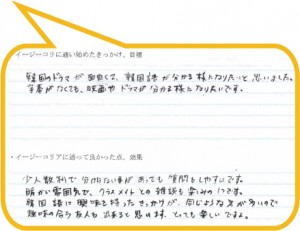 ・イージーコリに通い始めたきっかけ、目標
韓国のドラマが面白くて、韓国語が分かる様になりたいと思いました。
字幕がなくても、映画やドラマが分かる様になりたいです。
・イージーコリアに通って良かった点、効果
少人数制で分からない事があっても質問もしやすいです。
暖かい雰囲気で、クラスメイトとの雑談も楽しみの1つです。
韓国語に興味を持ったきっかけが、同じような方が多いので
趣味の合う友人も出来ると思います。とっても楽しいですよ。